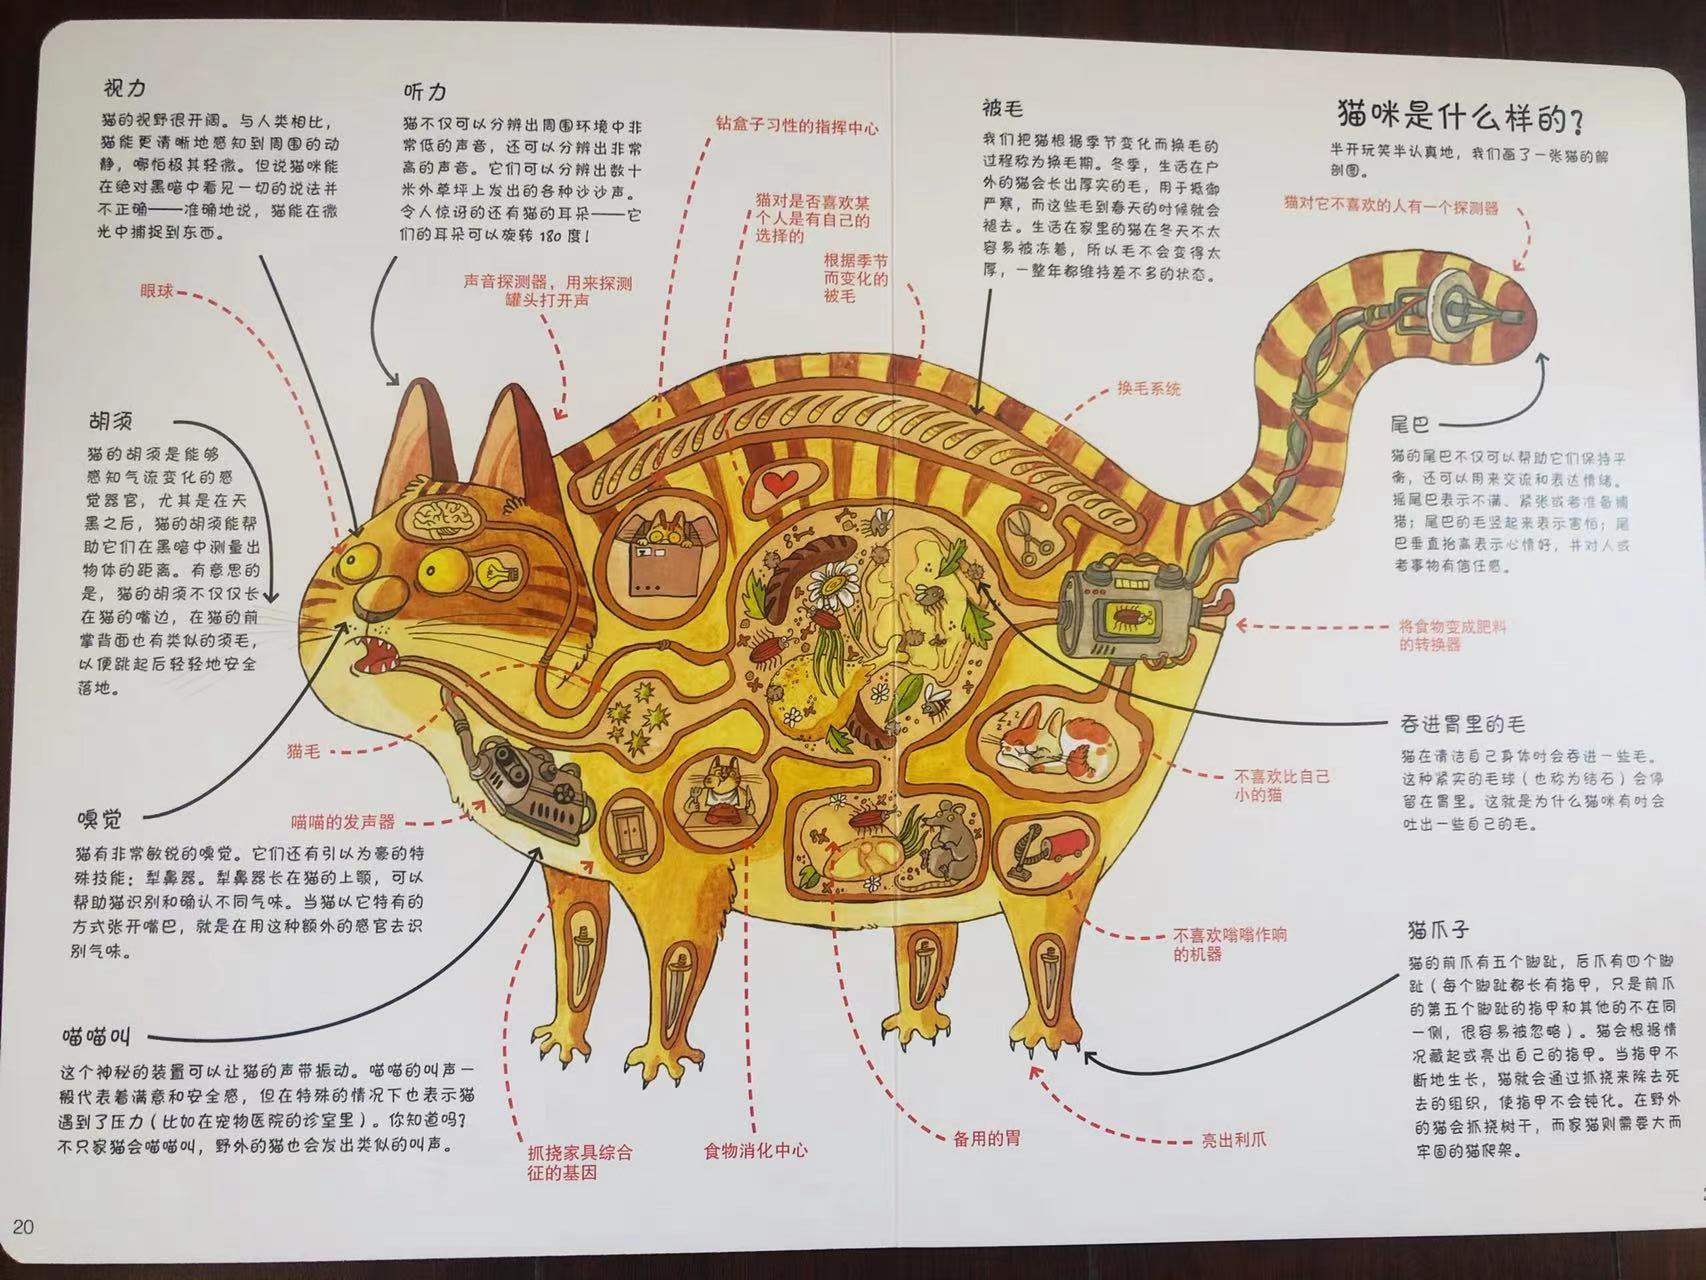 猫咪是什么样的?
半开玩笑半认真地，我们画了一张猫的解
剖图。
视力
猫的视野很开阔。与人类相比，
猫能更清晰地感知到周围的动
静，哪怕极其轻微。但说猫咪能
在绝对黑暗中看见一切的说法并
不正确——准确地说，猫能在微
光中捕捉到东西。
听力
猫不仅可以分辨出周围环境中非
常低的声音，还可以分辨出非常
高的声音。它们可以分辨出数十
米外草坪上发出的各种沙沙声。
令人惊讶的还有猫的耳朵——它
们的耳朵可以旋转 180 度!
钻盒子习性的指挥中心
猫对是否喜欢某
个人是有自己的
选择的
根据季节
而变化的
被毛
被毛
我们把猫根据季节变化而换毛的
过程称为换毛期。冬季，生活在户
外的猫会长出厚实的毛，用于抵御
严寒，而这些毛到春天的时候就会
褪去。生活在家里的猫在冬天不太
容易被冻着，所以毛不会变得太
厚，一整年都维持差不多的状态。
猫对它不喜欢的人有一个探测器
眼球
声音探测器，用来探测
罐头打开声
换毛系统
胡须
猫的胡须是能够
感知气流变化的感
觉器官，尤其是在天
黑之后，猫的胡须能帮
助它们在黑暗中测量出
物体的距离。有意思的
是，猫的胡须不仅仅长
在猫的嘴边，在猫的前
掌背面也有类似的须毛，
以便跳起后轻轻地安全
落地。
尾巴
猫的尾巴不仅可以帮助它们保持平
衡，还可以用来交流和表达情绪。
摇尾巴表示不满、紧张或者准备捕
猎；尾巴的毛竖起来表示害怕；尾
巴垂直抬高表示心情好，并对人或
者事物有信任感。
将食物变成肥料
的转换器
吞进胃里的毛
猫在清洁自己身体时会吞进一些毛。
这种紧实的毛球（也称为结石）会停
留在胃里。这就是为什么猫咪有时会
吐出一些自己的毛。
猫毛
不喜欢比自己
小的猫
喵喵的发声器
嗅觉
猫有非常敏锐的嗅觉。它们还有引以为豪的特
殊技能：犁鼻器。犁鼻器长在猫的上颚，可以
帮助猫识别和确认不同气味。当猫以它特有的
方式张开嘴巴，就是在用这种额外的感官去识
别气味。
不喜欢嗡嗡作响
的机器
猫爪子
猫的前爪有五个脚趾，后爪有四个脚
趾（每个脚趾都长有指甲，只是前爪
的第五个脚趾的指甲和其他的不在同
一侧，很容易被忽略）。猫会根据情
况藏起或亮出自己的指甲。当指甲不
断地生长，猫就会通过抓挠来除去死
去的组织，使指甲不会钝化。在野外
的猫会抓挠树干，而家猫则需要大而
牢固的猫爬架。
喵喵叫
这个神秘的装置可以让猫的声带振动。喵喵的叫声一
般代表着满意和安全感，但在特殊的情况下也表示猫
遇到了压力（比如在宠物医院的诊室里）。你知道吗?
不只家猫会喵喵叫，野外的猫也会发出类似的叫声。
抓挠家具综合
征的基因
食物消化中心
备用的胃
亮出利爪
20